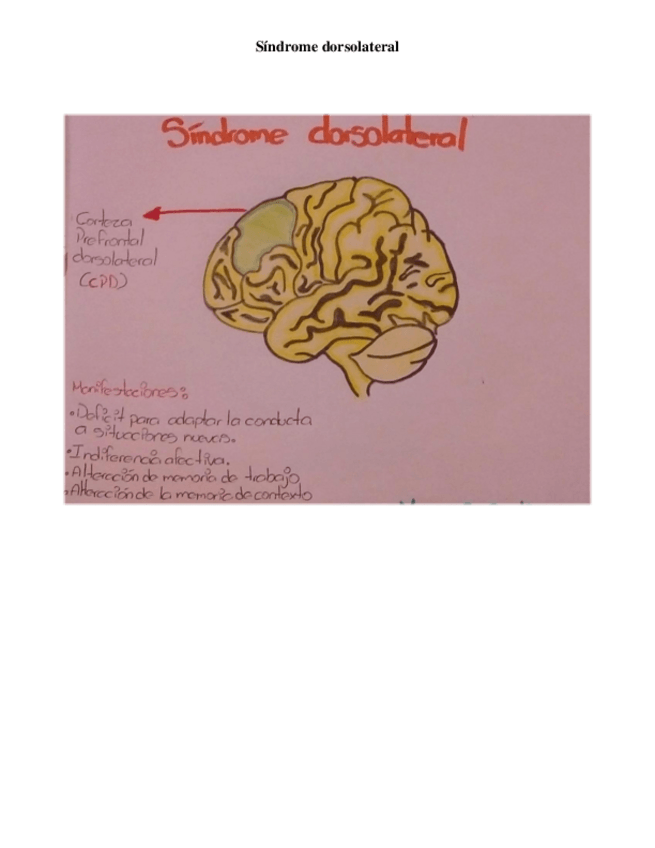 Síndrome dorsolateral
Síndrome dorsolateral
Corteza
Prefrontal
dorsolateral
(CPD)
Manifestaciones:
•Deficit para adaptar la conducta
a situaciones nuevas.
•Indiferencia afectiva.
•Alteración de memoria de trabajo
•Alteración de la memoria de contexto